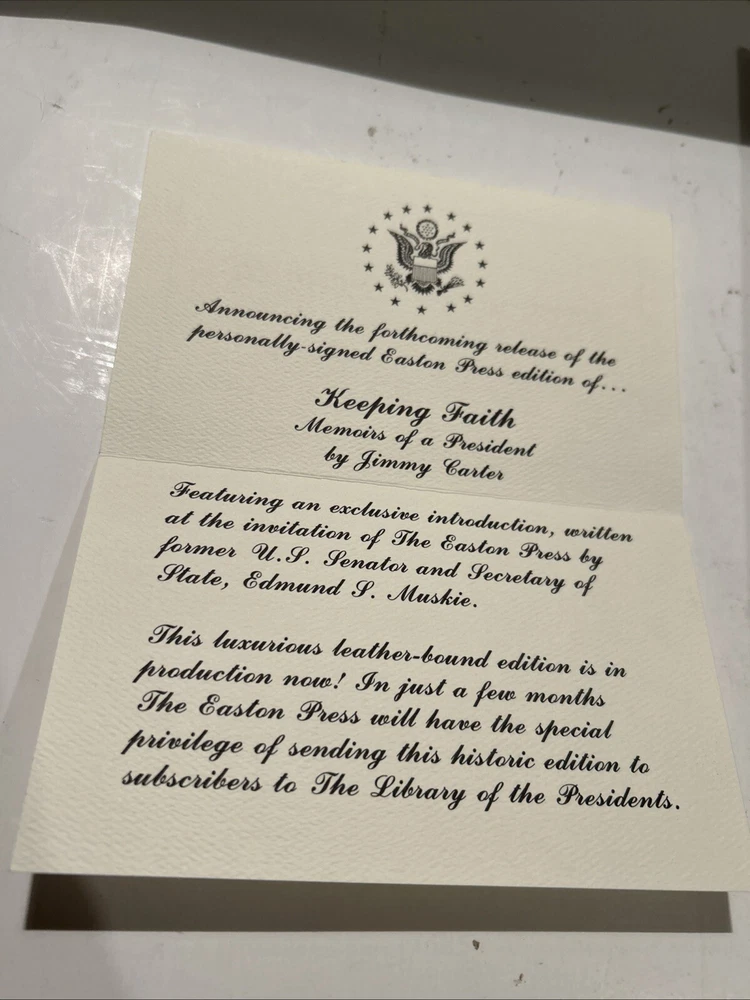 Announcing the forthcoming release of the
personally-signed Easton Press edition of...
Keeping Faith
Memoirs of a President
by Jimmy Carter
Featuring an exclusive introduction, written
at the invitation of The Easton Press by
former U.S. Senator and Secretary of
State, Edmund S. Muskie.
This luxurious leather-bound edition is in
production now! In just a few months
The Easton Press will have the special
privilege of sending this historic edition to
subscribers to The Library of the Presidents.